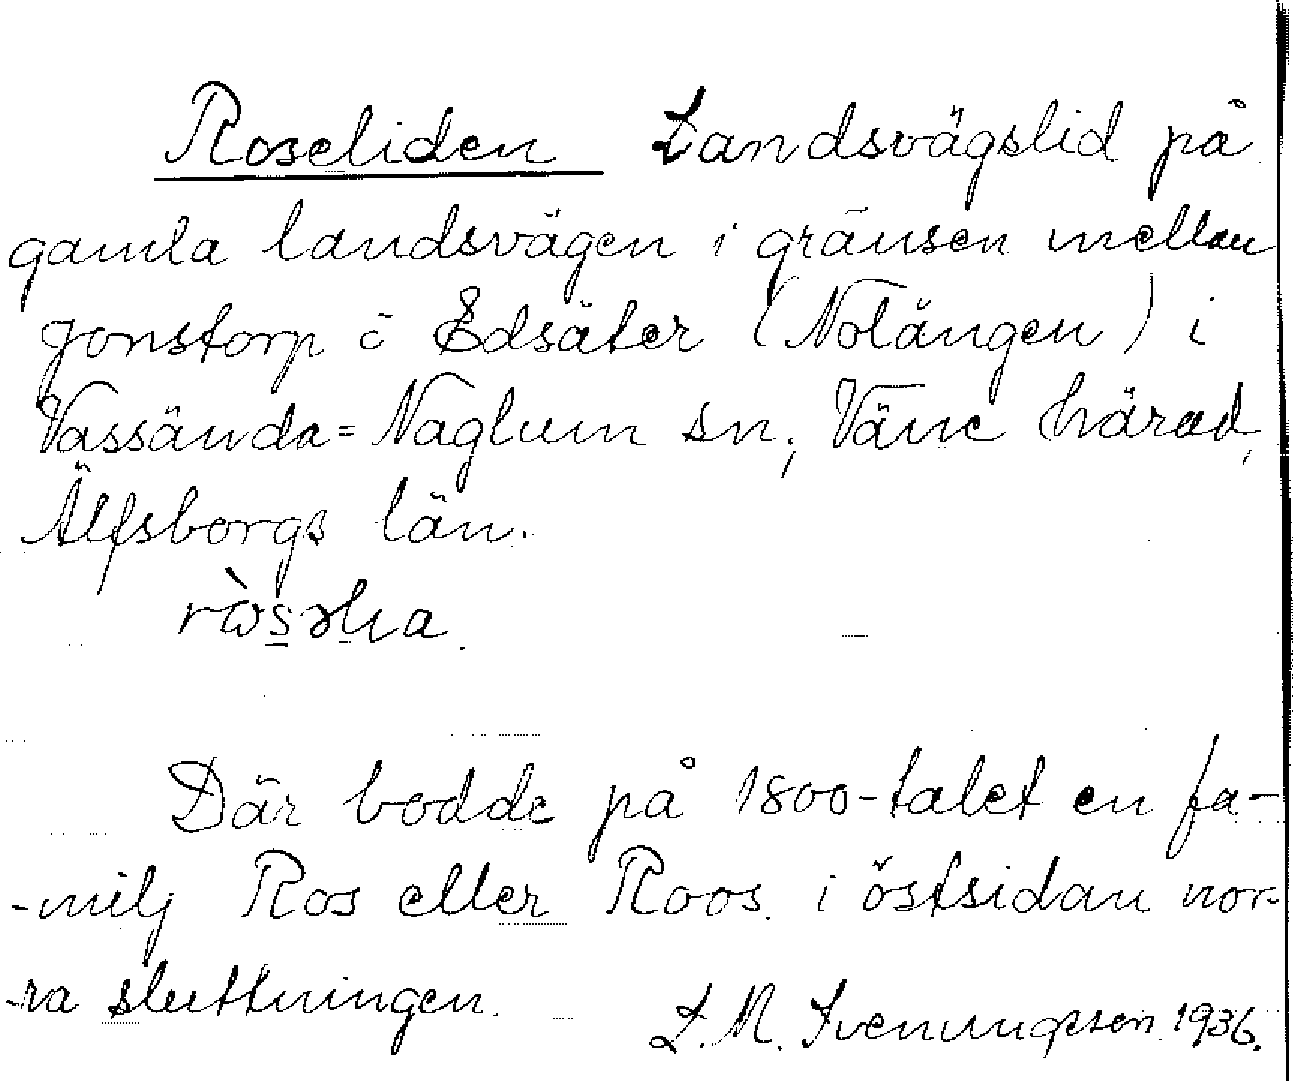 Roseliden Landsvägslid på
gamla landsvägen i gränsen mellan
Jonstorp o Edsäter (Notängen) i
Vassända=Naglum sn, Väne härad,
Älfsborgs län.
Där bodde på 1800-talet en fa-
-milj Ros eller Roos. i östsidan nor-
-ra sluttningen.
L. M. Svenungsson 1936.